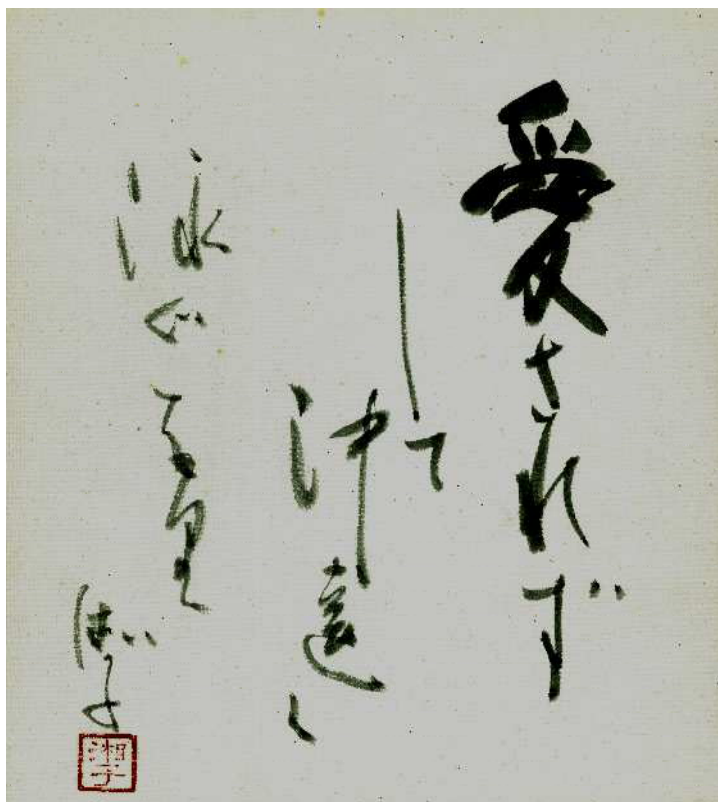 愛されず
して
沖遠く
泳ぐなり
湘子
湘子